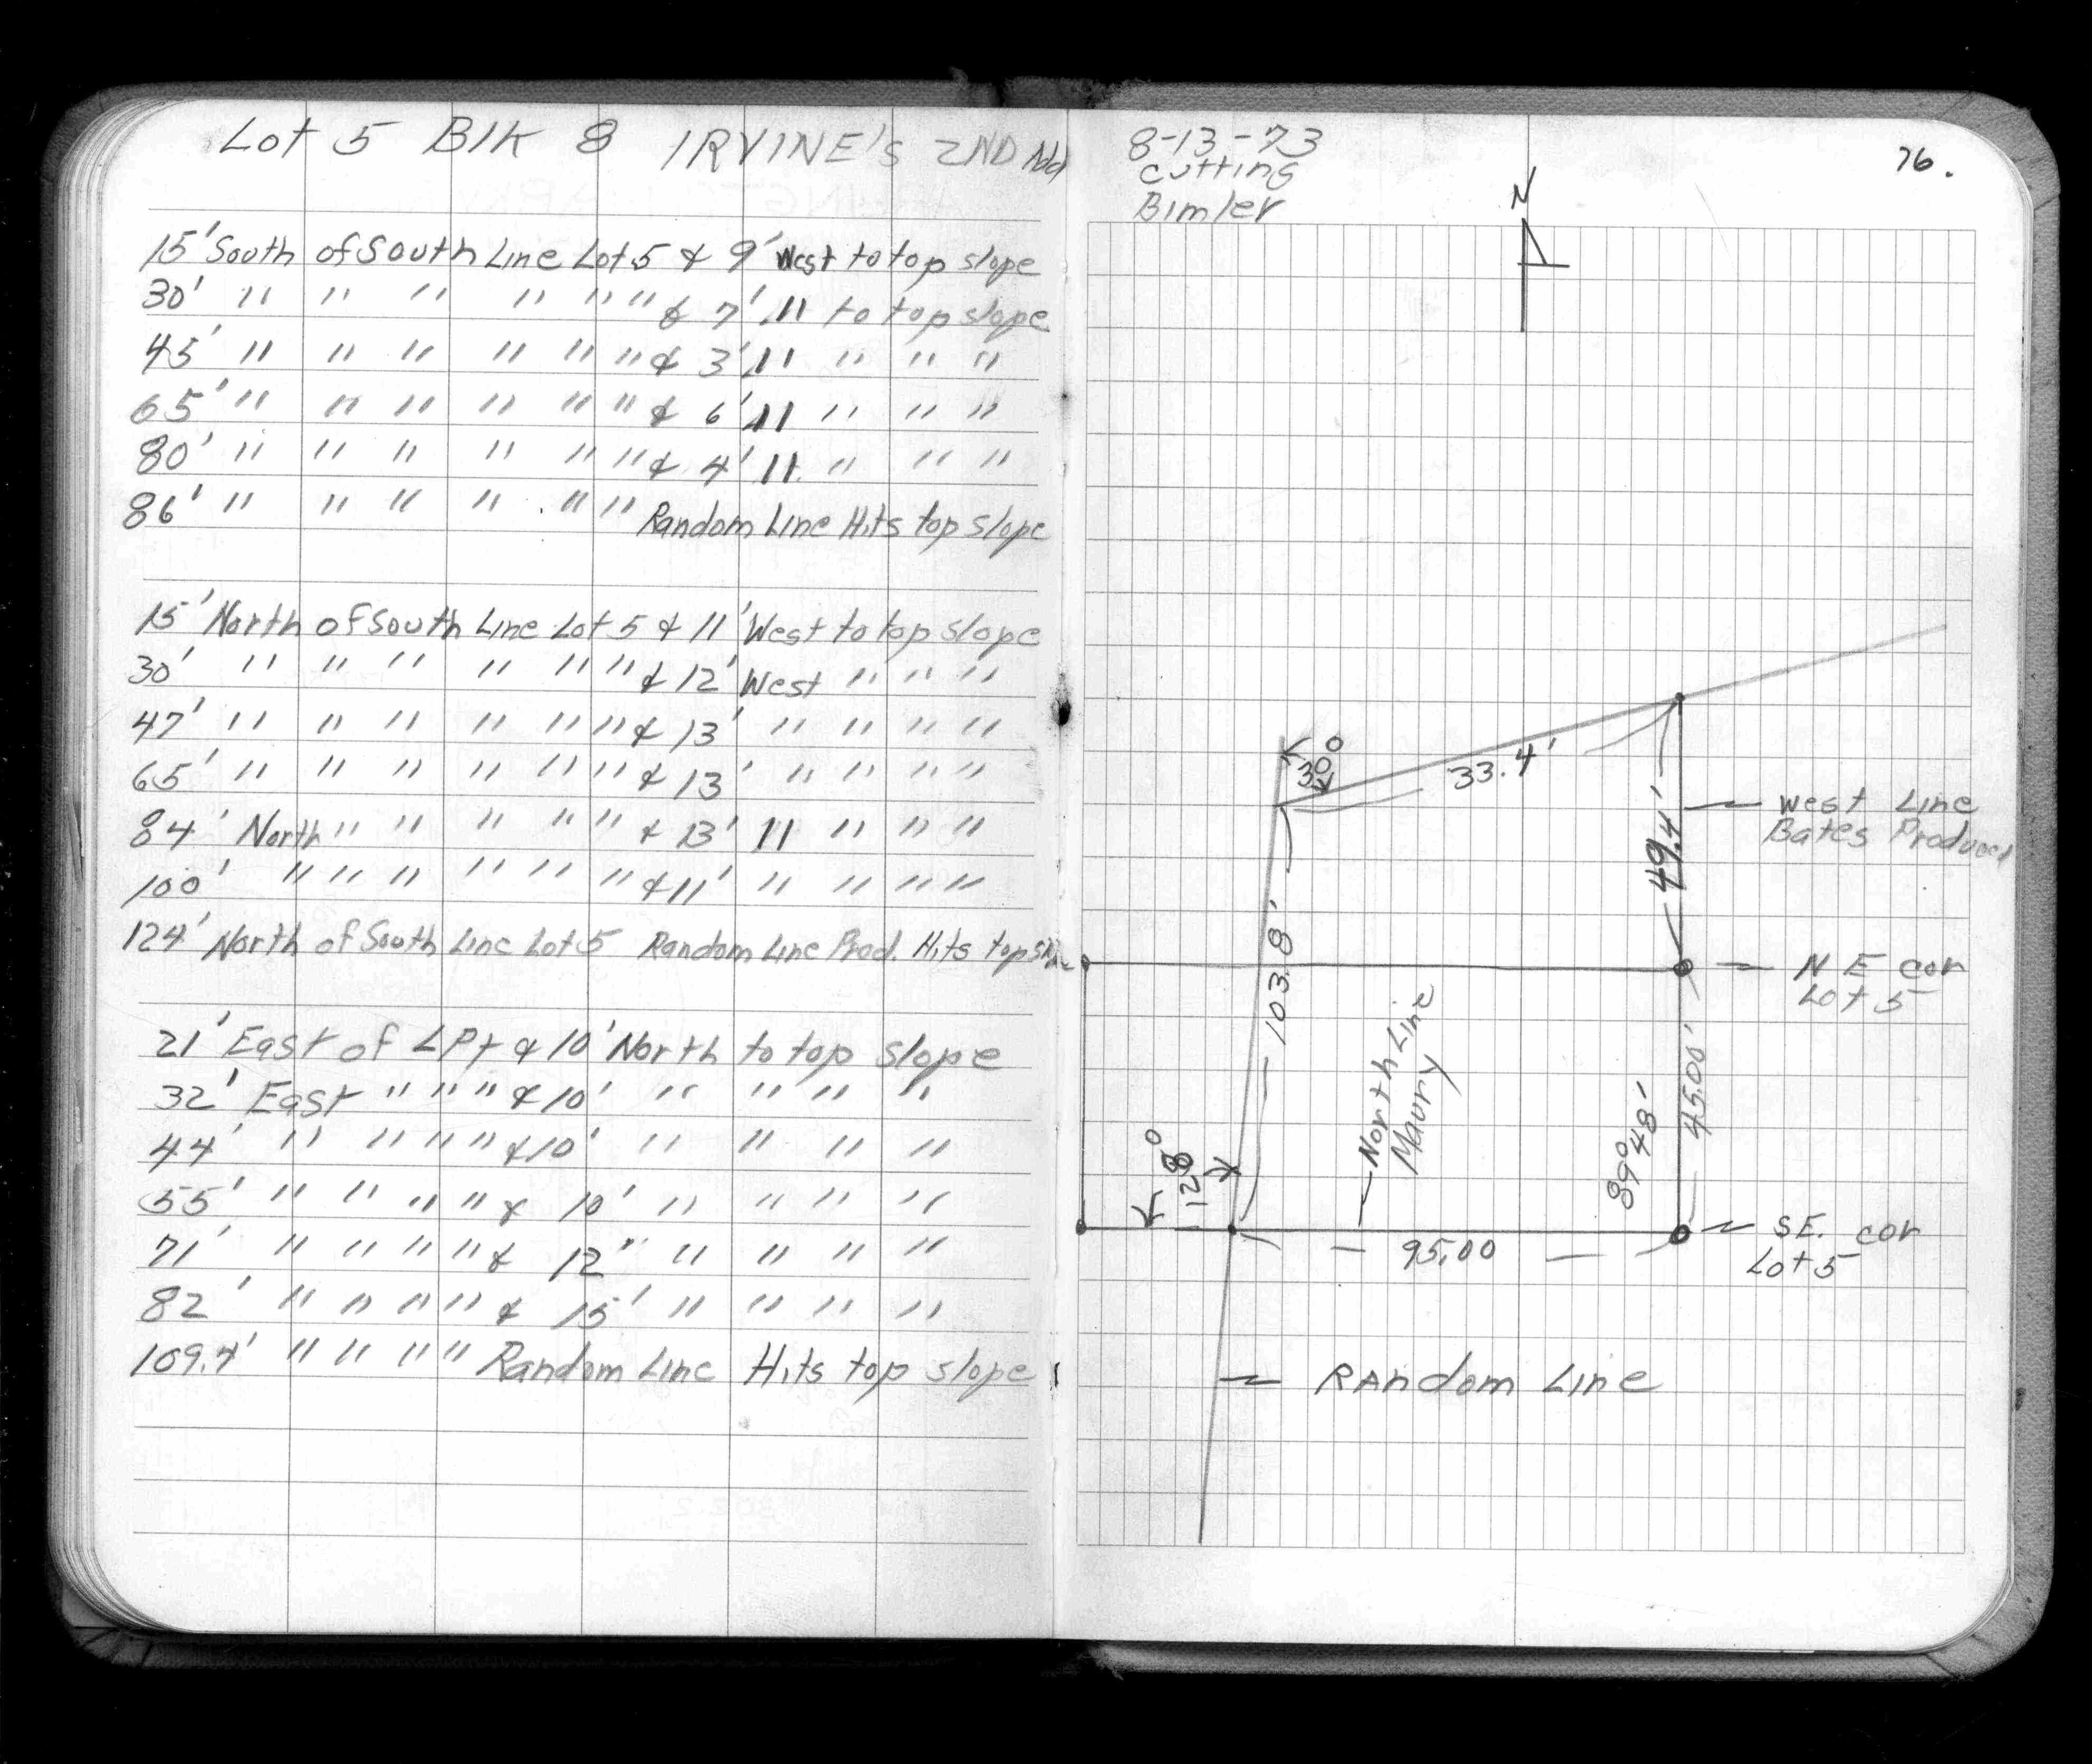 Lot 5 Blk 8 IRVINE's 2ND Add
15' South of South Line Lot 5 & 9' West to top slope
30' " " " " " " & 7' " to top slope
45' " " " " " " & 3' " " " "
65' " " " " " " & 6' " " " "
80' " " " " " " & 4' " " " "
86' " " " " " " Random Line Hits top slope
15' North of South Line Lot 5 & 11' West to top slope
30' " " " " " " & 12' West " " "
47' " " " " " " & 13' " " " "
65' " " " " " " & 13' " " " "
84' North " " " " " & 13' " " " "
100' " " " " " " & 11' " " " "
124' North of South Line Lot 5 Random Line Prod. Hits top
21' East of LPt & 10' North to top slope
32' East " " " & 10' " " " "
44' " " " " & 10' " " " "
55' " " " " & 10' " " " "
71' " " " " & 12' " " " "
82' " " " " & 15' " " " "
109.4' " " " " Random Line Hits top slope
8-13-73
Cutting
Bimler
76.
N
30°
33.4'
49.4'
West Line
Bates Produced
103.8'
N E cor
Lot 5
North Line
Maury
45.00'
89°48'
128°
95.00
S.E. cor
Lot 5
Random Line